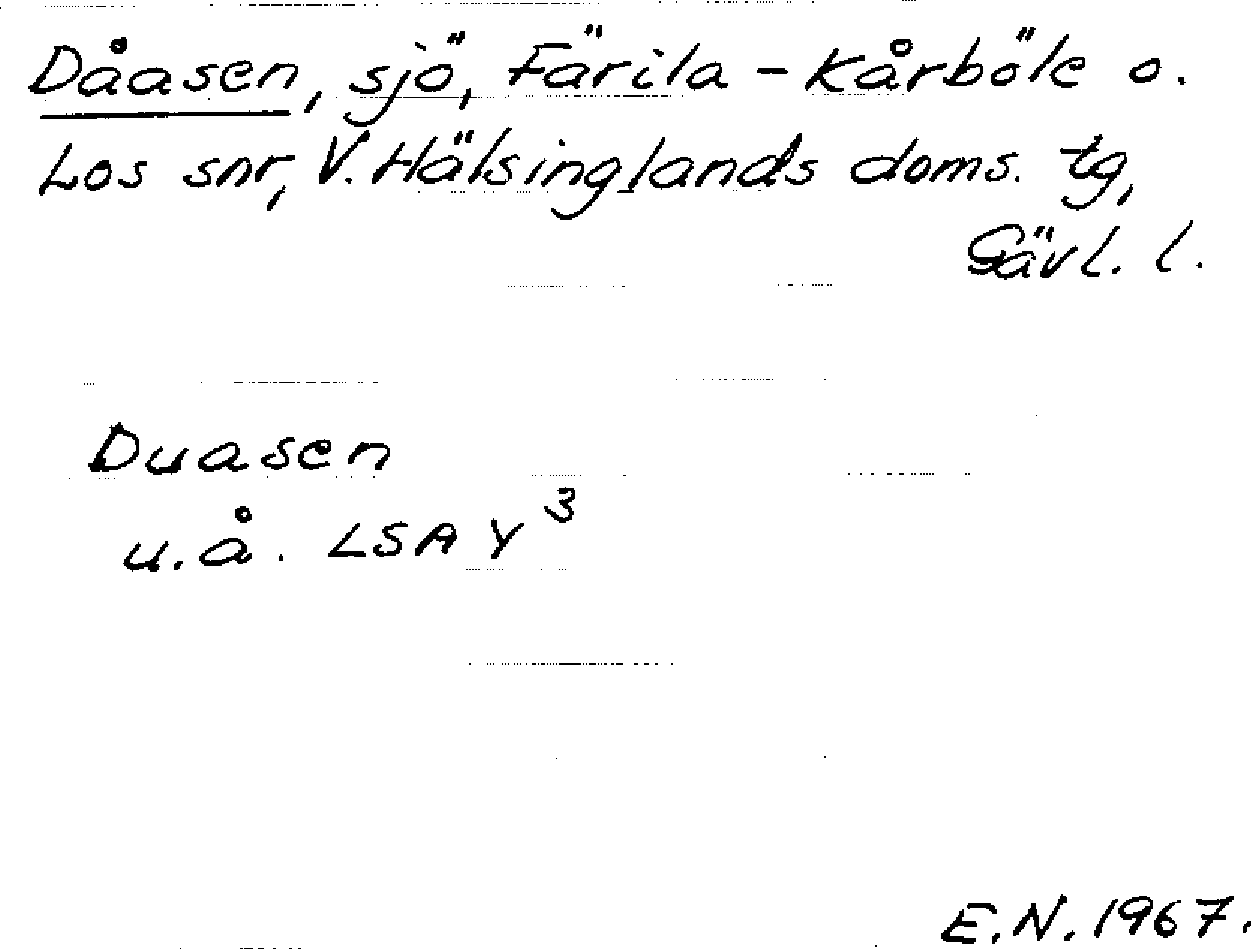 Dåasen, sjö, Färila - Kårböle o.
Los snr, V. Hälsinglands doms. tg,
Gävl. l.
Duasen
u.å. LSA Y³
E.N. 1967.